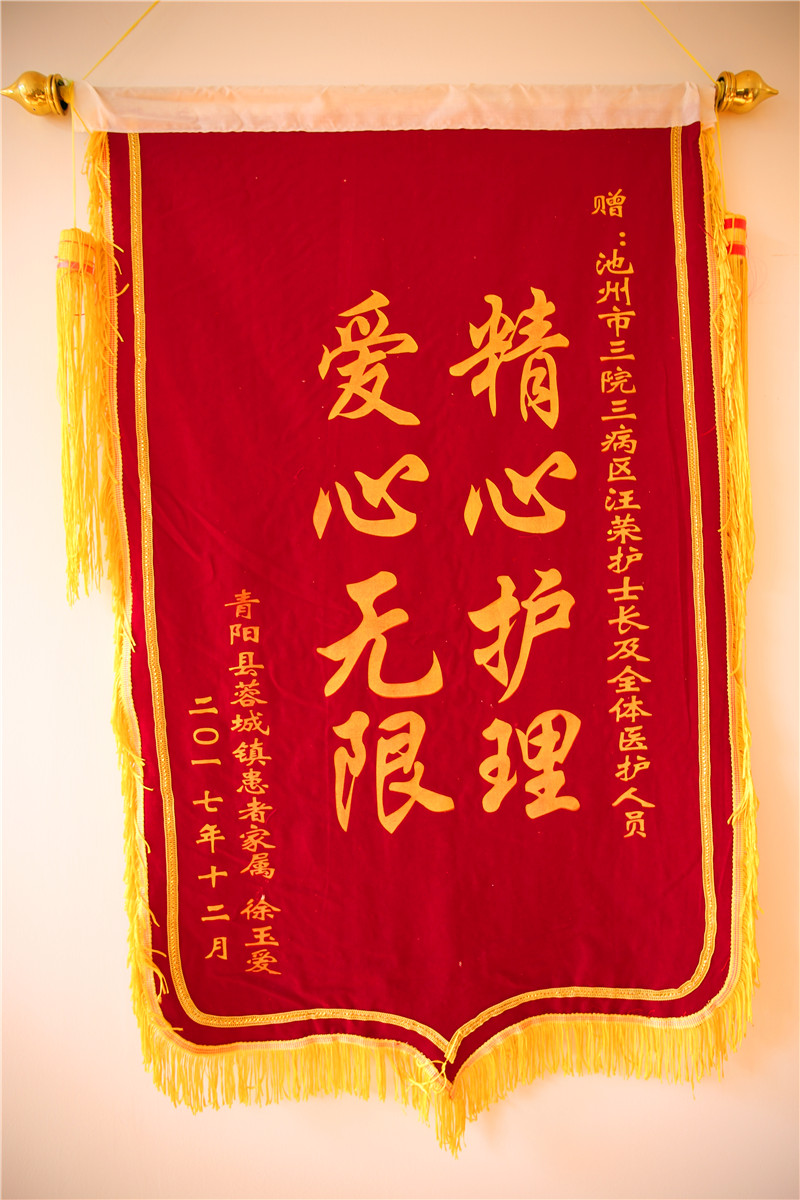 赠：池州市三院三病区汪荣护士长及全体医护人员
精心护理
爱心无限
青阳县蓉城镇患者家属 徐玉爱
二〇一七年十二月